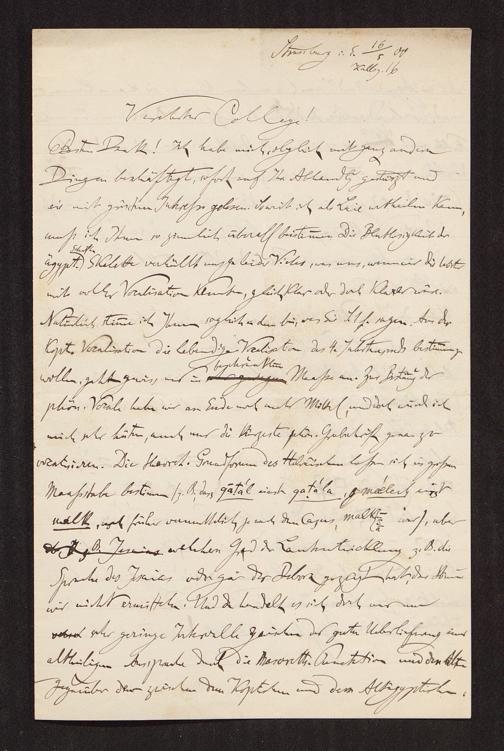 Strassburg i. E. 16/5 04
Kalbsg. 16
Verehrter College!
Besten Dank! Ich habe mich, obgleich mit ganz andern
Dingen beschäftigt, sofort auf Ihre Abhandlg gestürzt und
sie mit größtem Interesse gelesen. Soweit ich als Laie urtheilen kann,
muß ich Ihnen so ziemlich überall beistimmen. Die
ägypt. Skelette verhüllt uns leider Vieles, was uns, wenn wir die Texte
mit voller Vocalisation kennten, gleich klar oder doch klarer wäre.
Natürlich stimme ich Ihnen sogleich in dem bei, was Sie sagen. Aus der
Kopt. Vocalisation die lebendige Vocalisation des 4. Jahrtausends bestimmen
wollen, geht gewiss nur in beschränktem Maasse an. Zur Bestimg der
phön. Vocale haben wir am Ende noch mehr Mittel, und doch würde ich
mich sehr hüten, auch nur die kürzeste phön. Inschrift genau zu
vocalisieren. Die theoret. Grundformen des Hebräischen lassen sich in großem
Maaßstabe bestimmen (z. B. dass qatal einst qatala, melech einst
malk, noch früher vermuthlich, je nach dem Casus, malk war), aber
welchen Grad der Lautentwicklung z. B. die
Sprache des Jesaias oder gar der Debora gezeigt hat, das können
wir nicht ermitteln. Und da handelt es sich doch nur um
sehr geringe Intervalle zwischen der guten Ueberlieferung einer
altheiligen Aussprache durch die masoreth. Punctation und den Alten
gegenüber dem zwischen dem Koptischen und dem Altägyptischen.